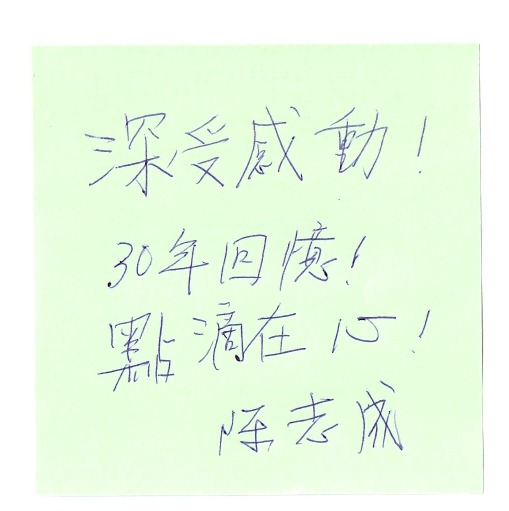 深受感動！
30年回憶！
點滴在心！
陈志成